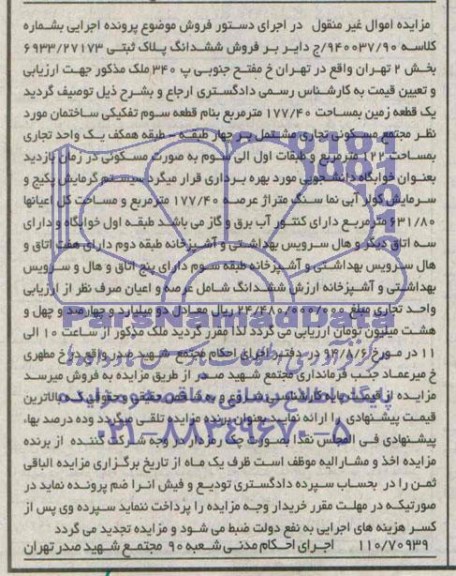 مزایده اموال غیر منقول در اجرای دستور فروش موضوع پرونده اجرایی بشماره
کلاسه ۹۴۰۰۳۷/۹۰/ج دایر بر فروش ششدانگ پلاک ثبتی ۶۹۳۳/۲۷۱۷۳
بخش ۲ تهران واقع در تهران خ مفتح جنوبی پ ۳۴۰ ملک مذکور جهت ارزیابی
و تعیین قیمت به کارشناس رسمی دادگستری ارجاع و بشرح ذیل توصیف گردید
یک قطعه زمین بمساحت ۱۷۷/۴۰ مترمربع بنام قطعه سوم تفکیکی ساختمان مورد
نظر مجتمع مسکونی تجاری مشتمل بر چهار طبقه - طبقه همکف یک واحد تجاری
بمساحت ۱۲۲ مترمربع و طبقات اول الی سوم به صورت مسکونی در زمان بازدید
بعنوان خوابگاه دانشجویی مورد بهره برداری قرار میگرد سیستم گرمایش پکیج و
سرمایش کولر آبی نما سنگ متراژ عرصه ۱۷۷/۴۰ مترمربع و مساحت کل اعیانها
۶۳۱/۸۰ مترمربع دارای کنتور آب برق و گاز می باشد طبقه اول خوابگاه و دارای
سه اتاق دیگر و هال سرویس بهداشتی و آشپزخانه طبقه دوم دارای هفت اتاق و
هال سرویس بهداشتی و آشپزخانه طبقه سوم دارای پنج اتاق و هال و سرویس
بهداشتی و آشپزخانه ارزش ششدانگ شامل عرصه و اعیان صرف نظر از ارزیابی
واحد تجاری مبلغ ۲۴/۴۸۰۰۰۰۰۰۰۰ ریال معادل دو میلیارد و چهارصد و چهل و
هشت میلیون تومان ارزیابی می گردد لذا مقرر گردید ملک مذکور از ساعت ۱۰ الی
۱۱ در مورخ ۹۴/۸/۶ در دفتر اجرای احکام مجتمع شهید صدر واقع در خ مطهری
خ میرعماد جنب فرمانداری مجتمع شهید صدر از طریق مزایده به فروش میرسد
مزایده از قیمت پایه کارشناسی شروع و به هر شخص حقیقی و حقوقی که بالاترین
قیمت پیشنهادی را ارائه نماید بعنوان برنده مزایده تلقی میگردد وده درصد بهاء
پیشنهادی فی المجلس نقدا بصورت چک رمزدار در وجه شرکت کننده از برنده
مزایده اخذ و مشارالیه موظف است ظرف یک ماه از تاریخ برگزاری مزایده الباقی
ثمن را در بحساب سپرده دادگستری تودیع و فیش انرا ضم پرونده نماید در
صورتیکه در مهلت مقرر خریدار وجه مزایده را پرداخت ننماید سپرده وی پس از
کسر هزینه های اجرایی به نفع دولت ضبط می شود و مزایده تجدید می گردد
۱۱۰/۷۰۹۳۹ اجرای احکام مدنی شعبه ۹۰ مجتمع شهید صدر تهران
ParsNamadData
۰۲۱-۸۸۳۴۹۶۷۰-۵